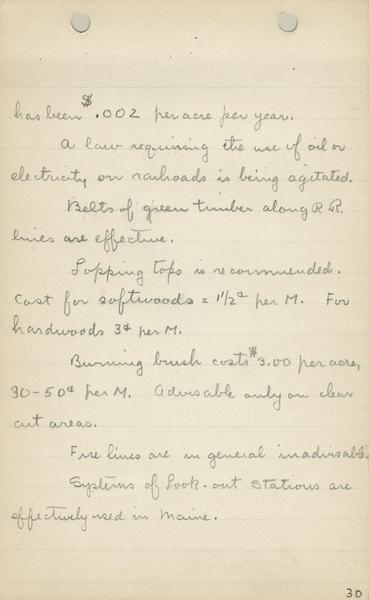 has been $.002 per acre per year.
A law requiring the use of oil or
electricity on railroads is being agitated.
Belts of green timber along R.R.
lines are effective.
Lopping tops is recommended.
Cost for softwoods = 1 1/2¢ per M. For
hardwoods 3¢ per M.
Burning brush costs $3.00 per acre,
30-50¢ per M. Advisable only on clear
cut areas.
Fire lines are in general inadvisable.
Systems of Look-out Stations are
effectively used in Maine.
30